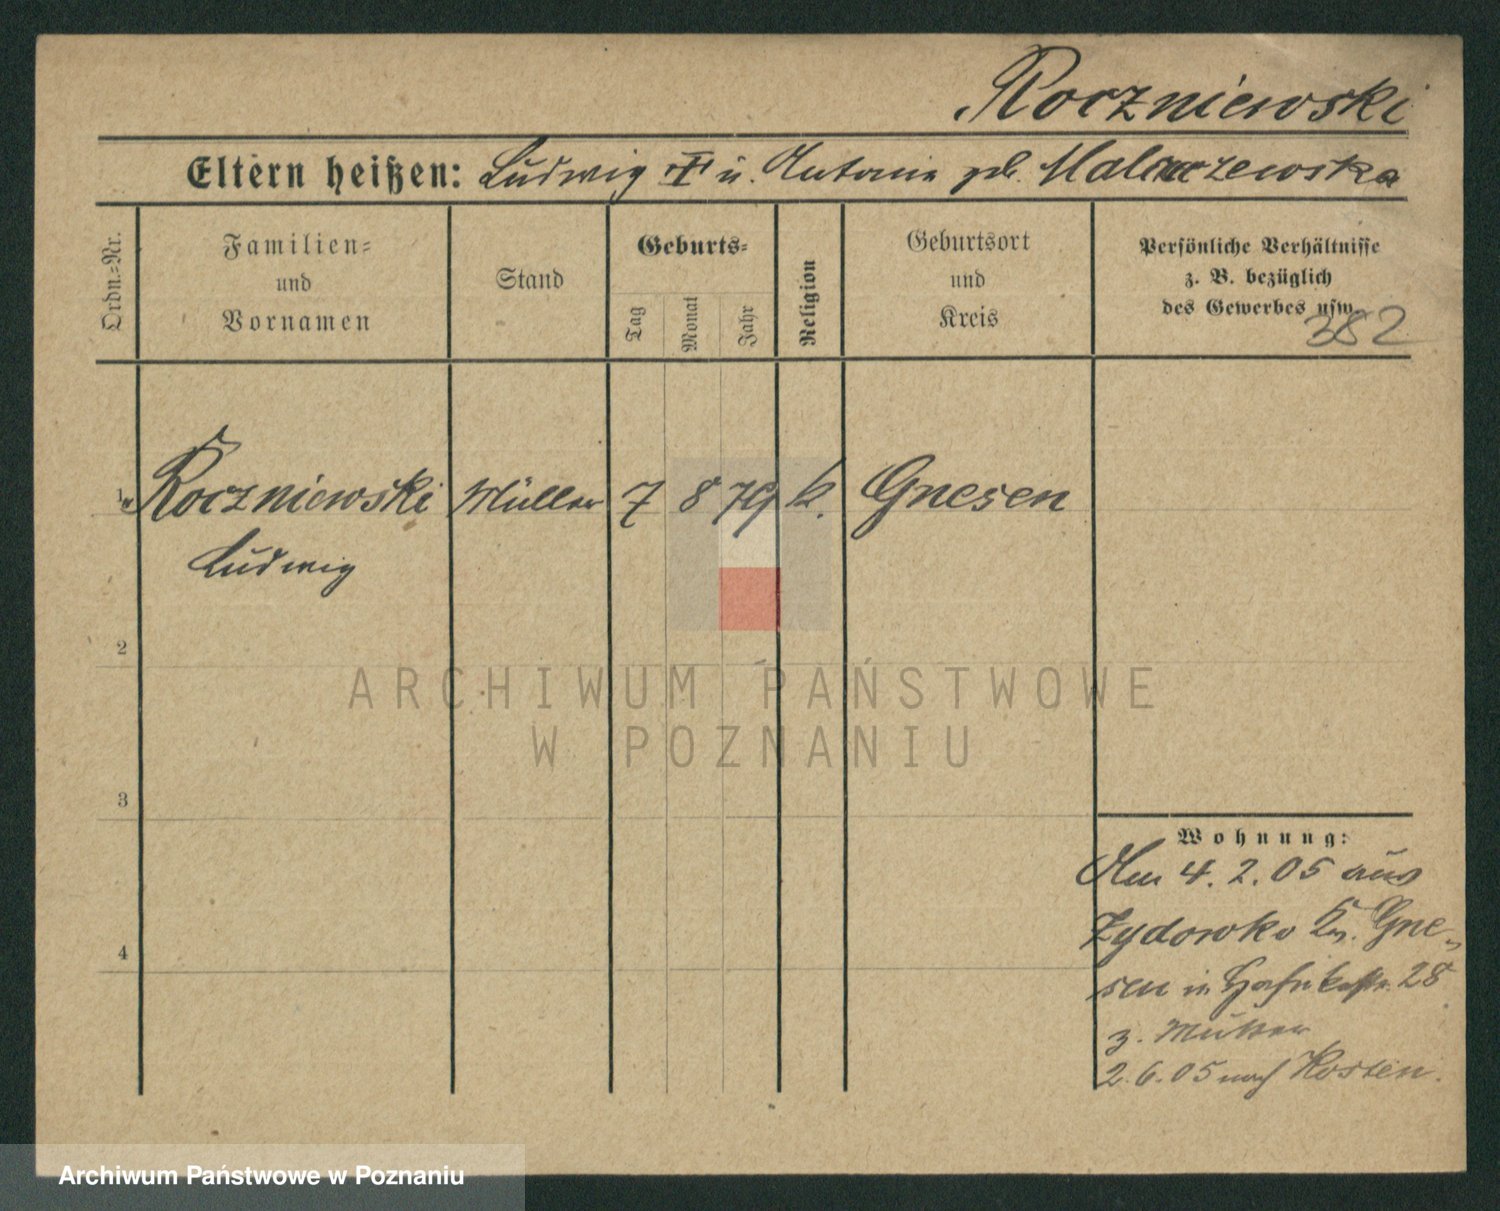 Roczniewski
Eltern heißen: Ludwig † u. Antonie geb.
Ordn.-Nr.
Familien-
und
Vornamen
Stand
Geburts-
Tag
Monat
Jahr
Religion
Geburtsort
und
Kreis
Persönliche Verhältnisse
z. B. bezüglich
des Gewerbes usw.
382
1 Roczniewski Müller 7 8 79 k. Gnesen
Ludwig
2
3
4
Wohnung:
Am 4. 2. 05 aus
Zydowko Kr. Gne-
sen in 28
z. Mutter
2. 6. 05 nach Kosten.
ARCHIWUM PAŃSTWOWE
W POZNANIU
Archiwum Państwowe w Poznaniu